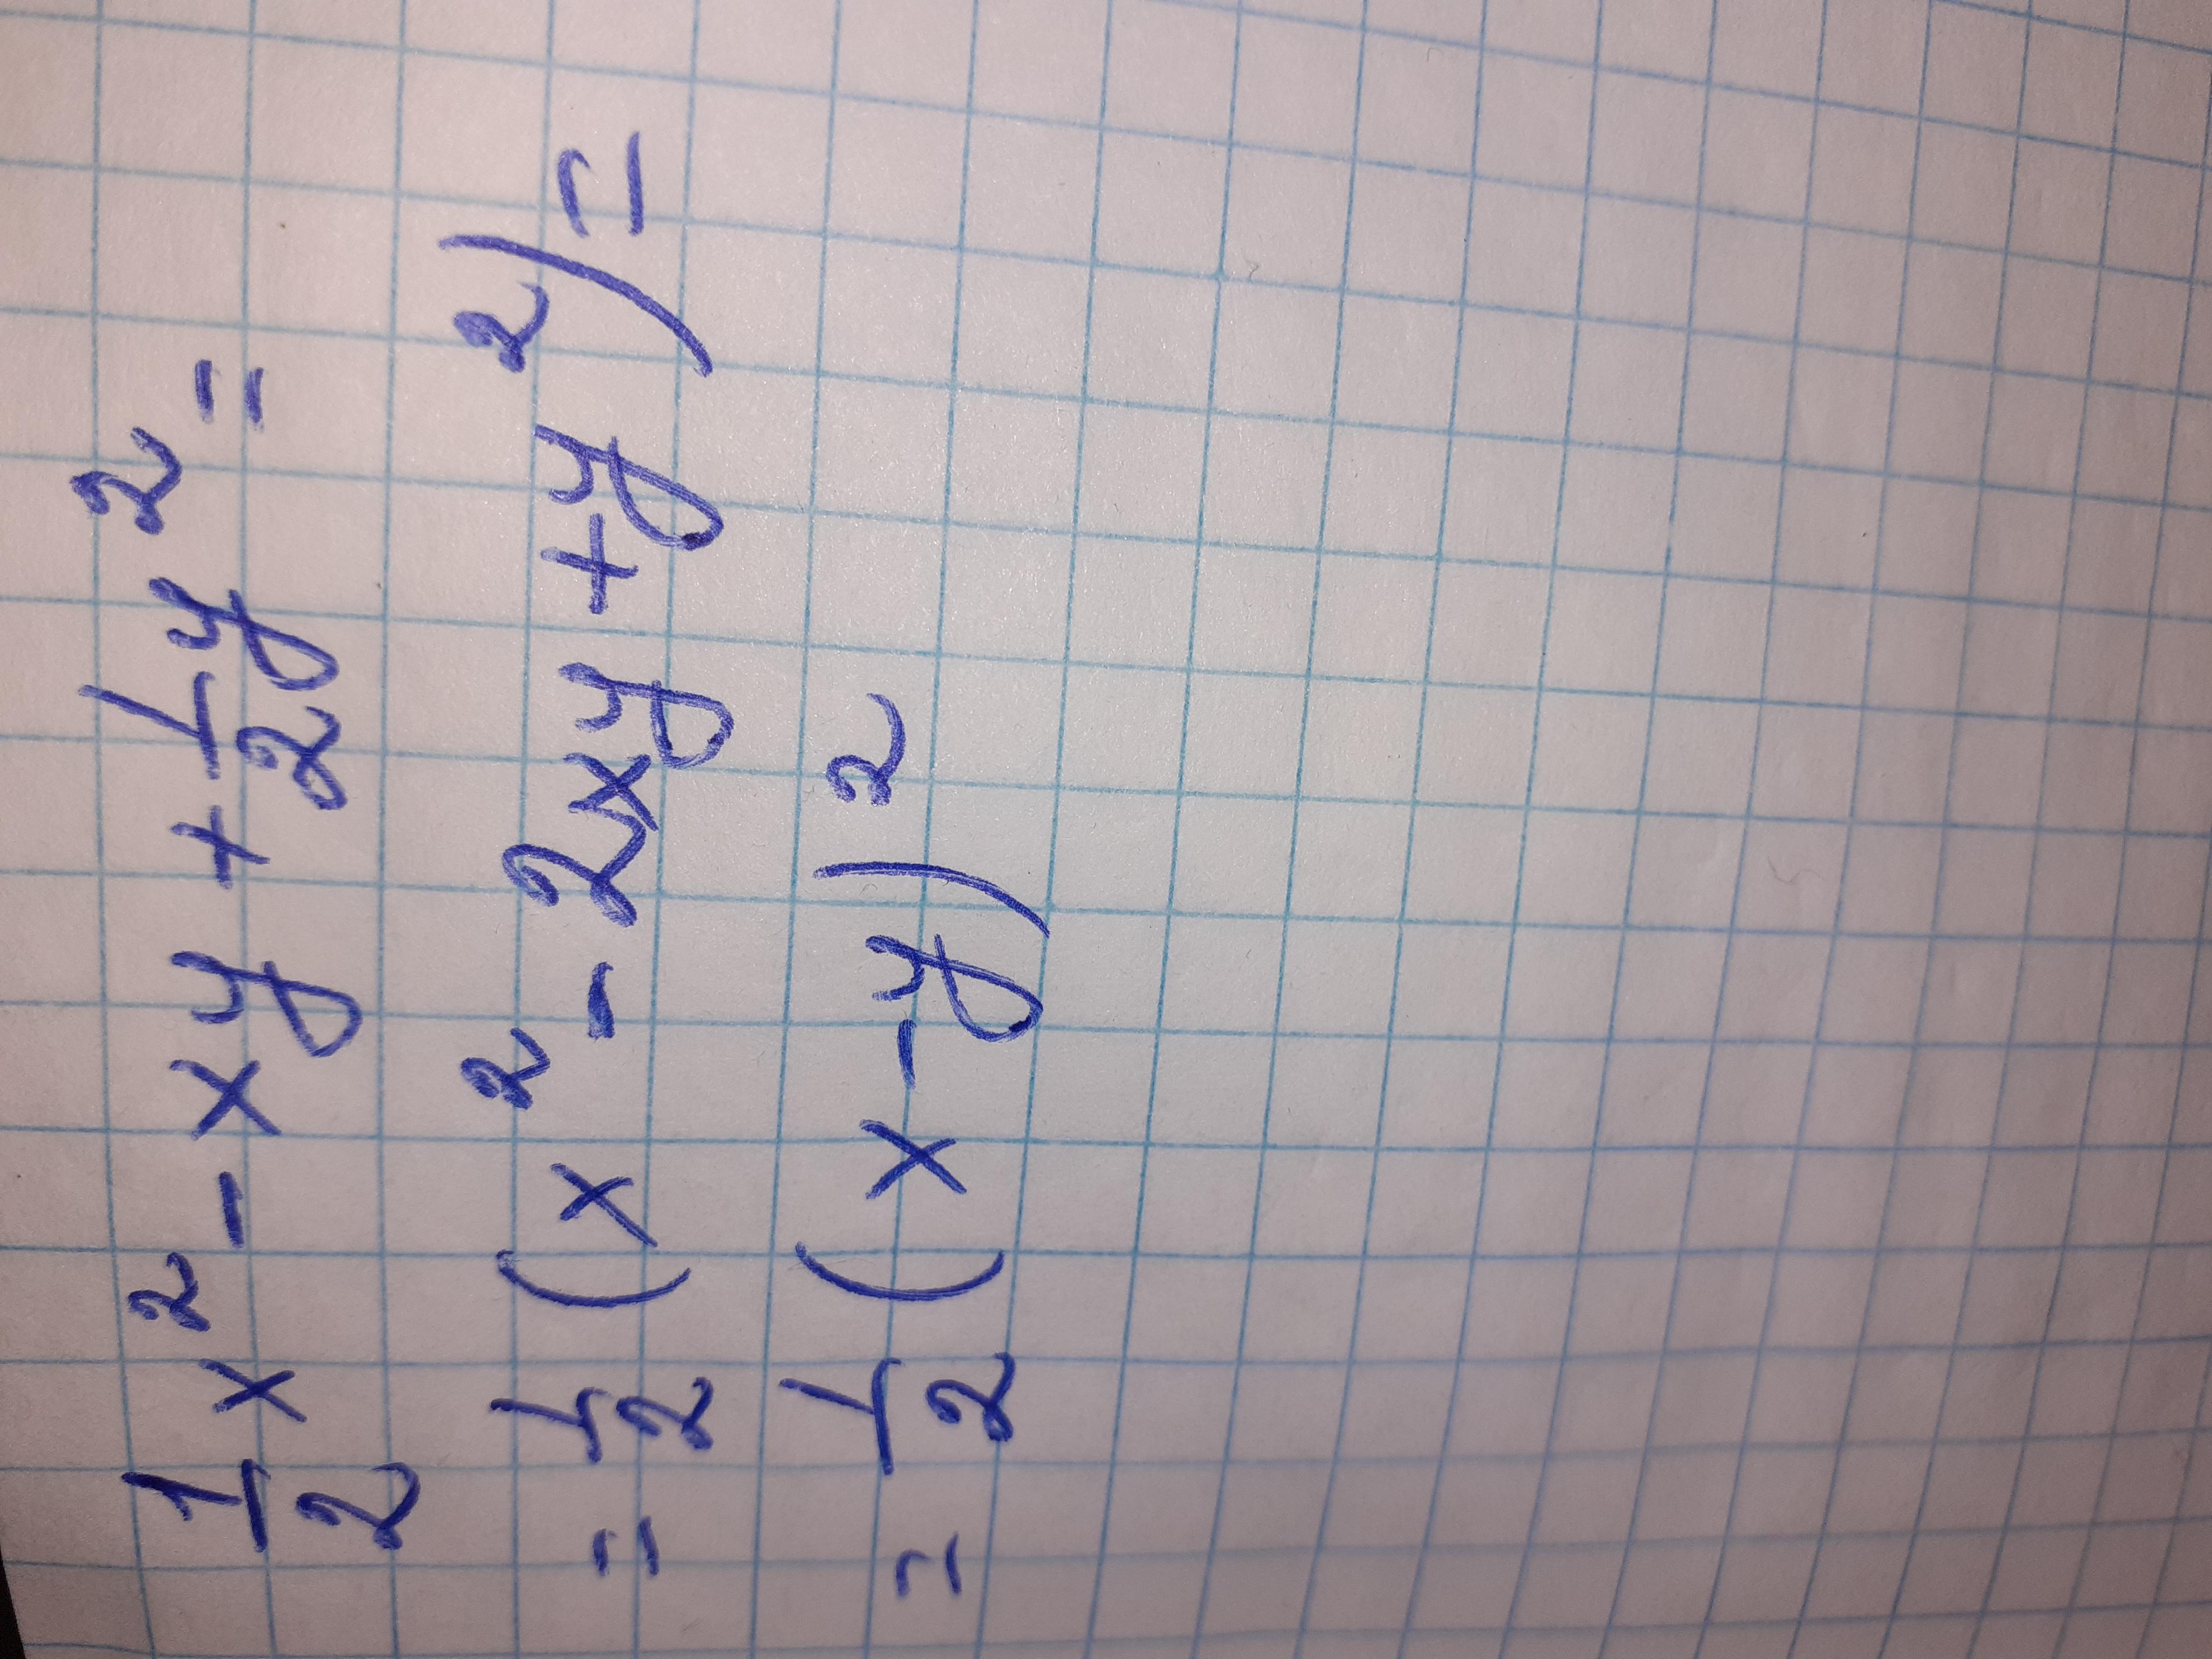 1/2 x² - xy + 1/2 y² =
= 1/2 (x² - 2xy + y²) =
= 1/2 (x - y)²